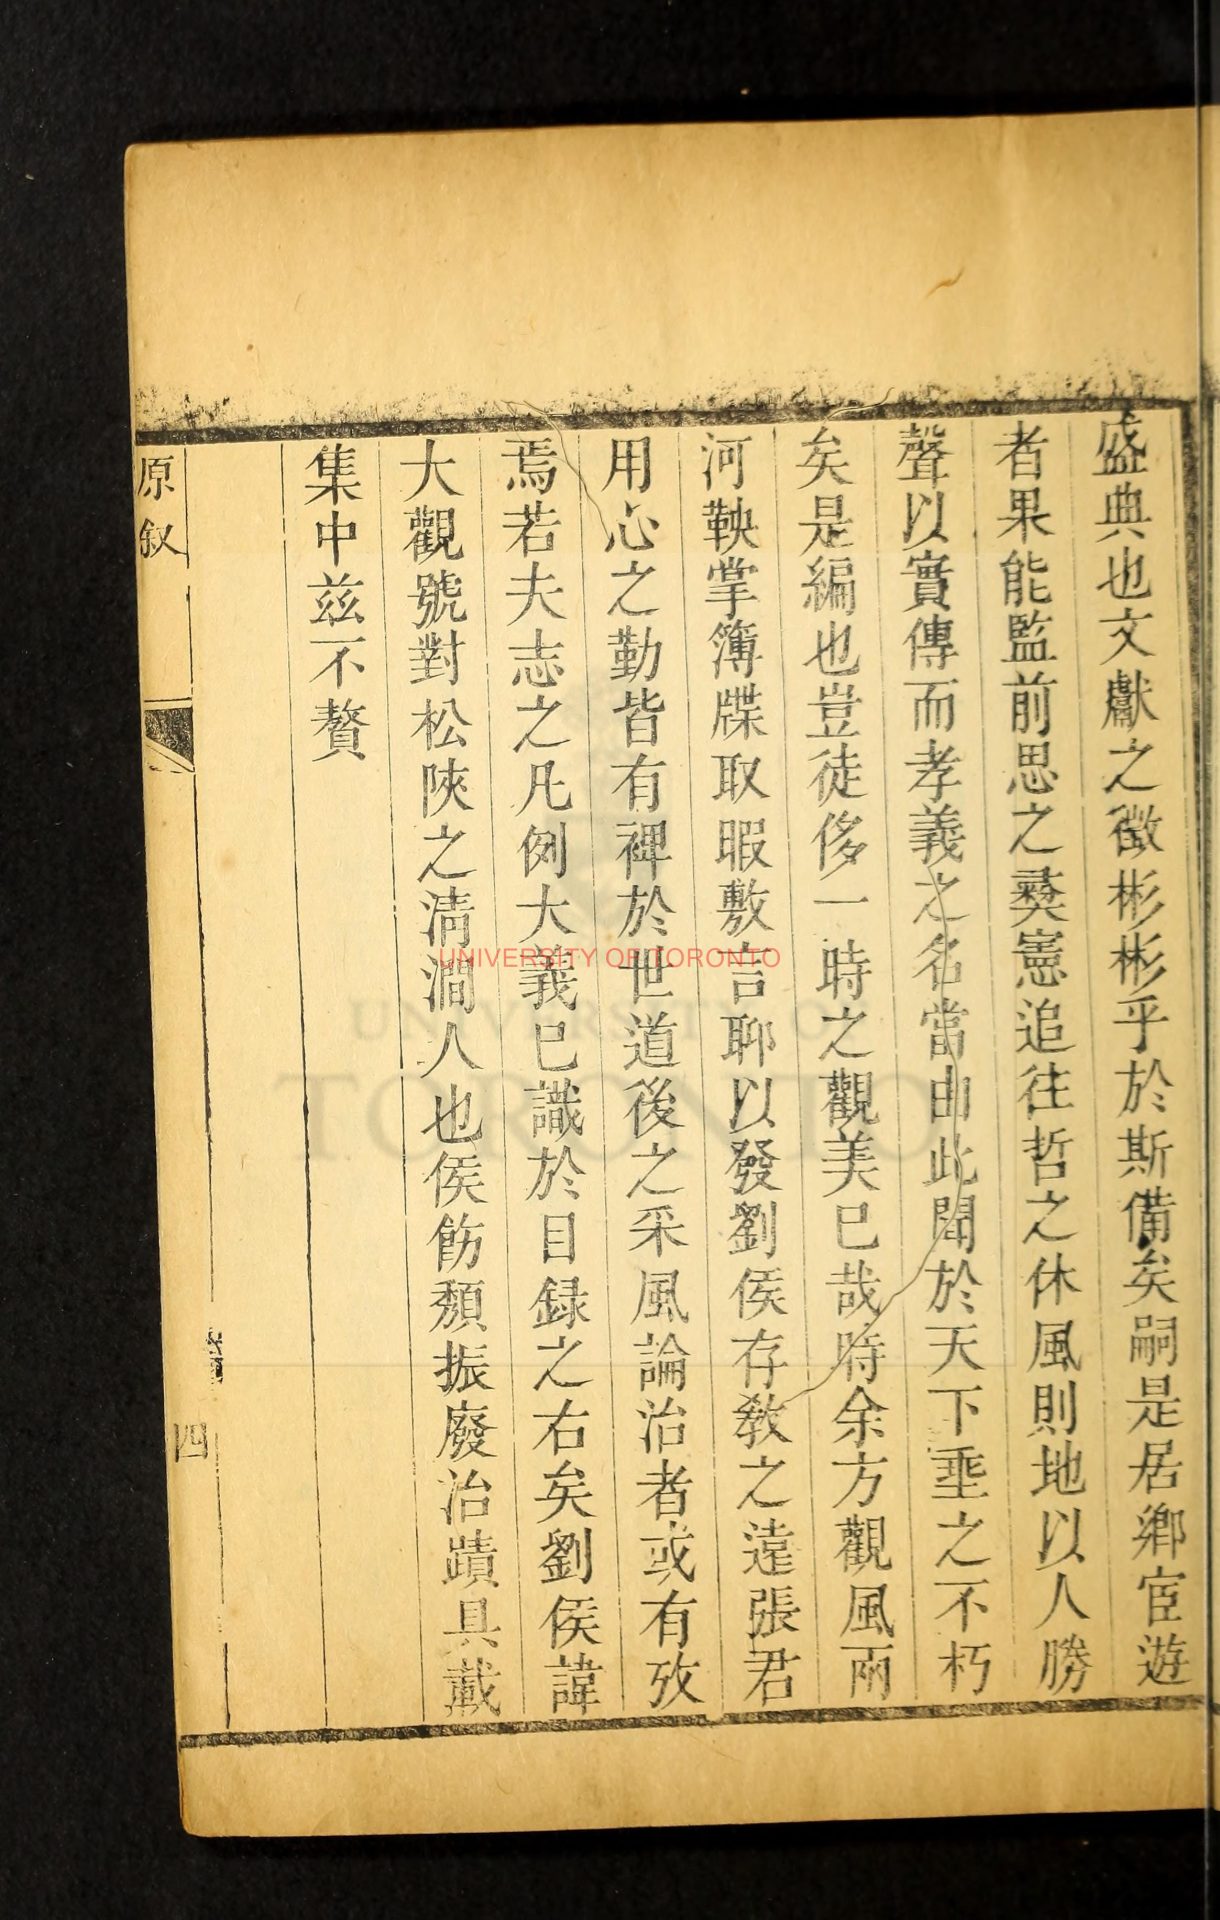 盛典也文獻之徵彬彬乎於斯備矣嗣是居鄉宦遊
者果能監前思之彛憲追往哲之休風則地以人勝
聲以實傳而孝義之名當由此聞於天下垂之不朽
矣是編也豈徒侈一時之觀美已哉時余方觀風兩
河鞅掌簿牒取暇敷言聊以發劉侯存敎之遠張君
用心之勤皆有裨於世道後之采風論治者或有攷
焉若夫志之凡例大義已識於目録之右矣劉侯諱
大觀號對松陝之淸澗人也侯飭頽振廢治蹟具載
集中茲不贅
原叙
四
UNIVERSITY OF TORONTO
UNIVERSITY OF
TORONTO